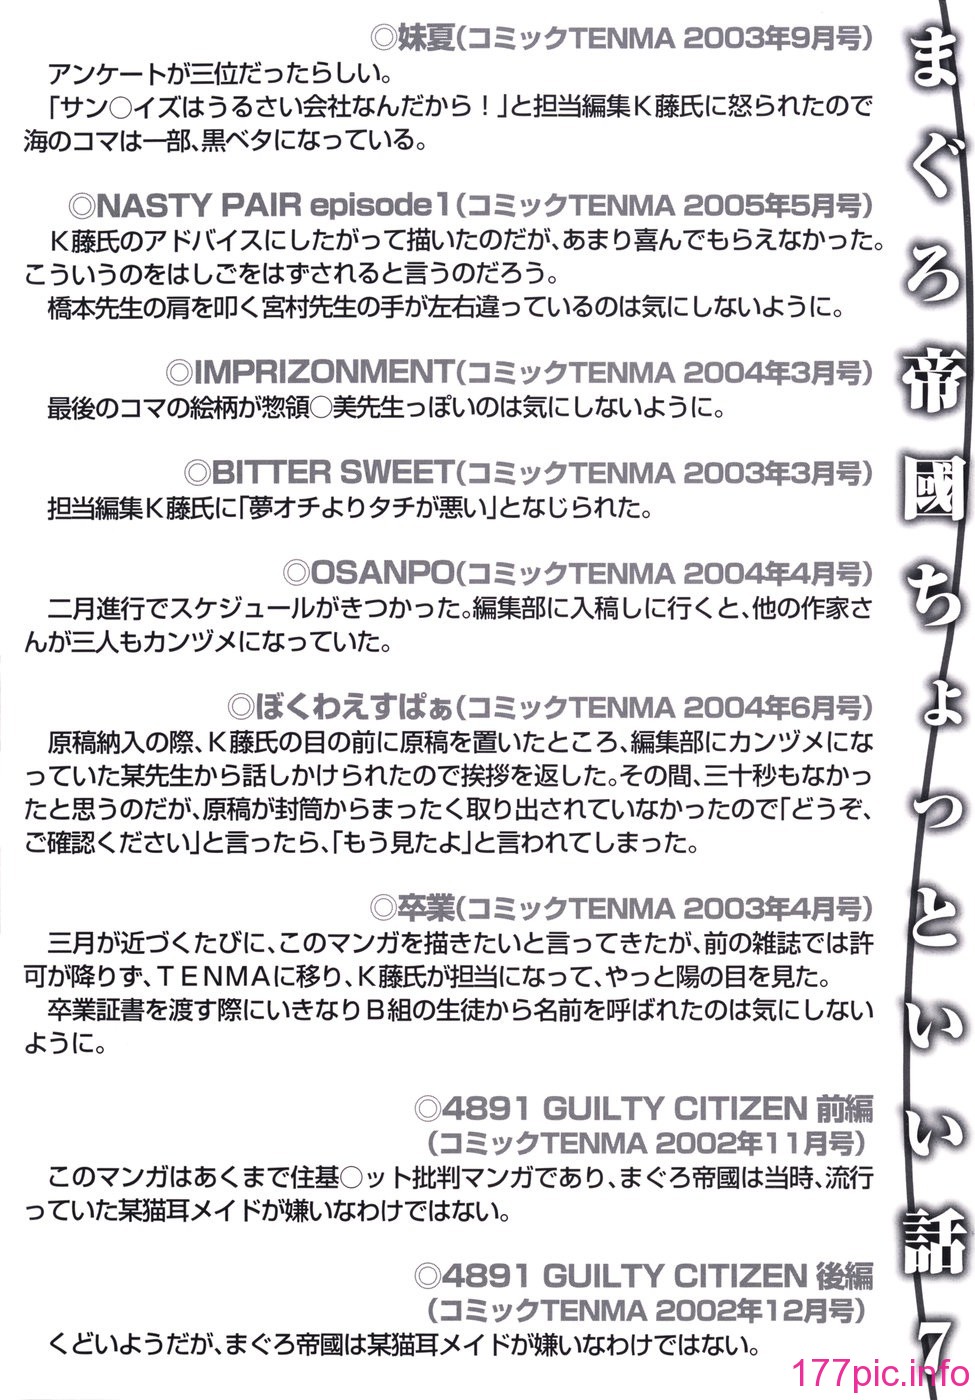 まぐろ帝國ちょっといい話7
◎妹夏(コミックTENMA 2003年9月号)
アンケートが三位だったらしい。
「サン○イズはうるさい会社なんだから！」と担当編集Ｋ藤氏に怒られたので
海のコマは一部、黒ベタになっている。
◎NASTY PAIR episode1(コミックTENMA 2005年5月号)
Ｋ藤氏のアドバイスにしたがって描いたのだが、あまり喜んでもらえなかった。
こういうのをはしごをはずされると言うのだろう。
橋本先生の肩を叩く宮村先生の手が左右違っているのは気にしないように。
◎IMPRIZONMENT(コミックTENMA 2004年3月号)
最後のコマの絵柄が惣領○美先生っぽいのは気にしないように。
◎BITTER SWEET(コミックTENMA 2003年3月号)
担当編集Ｋ藤氏に「夢オチよりタチが悪い」となじられた。
◎OSANPO(コミックTENMA 2004年4月号)
二月進行でスケジュールがきつかった。編集部に入稿しに行くと、他の作家さ
んが三人もカンヅメになっていた。
◎ぼくわえすぱぁ(コミックTENMA 2004年6月号)
原稿納入の際、Ｋ藤氏の目の前に原稿を置いたところ、編集部にカンヅメにな
っていた某先生から話しかけられたので挨拶を返した。その間、三十秒もなかっ
たと思うのだが、原稿が封筒からまったく取り出されていなかったので「どうぞ、
ご確認ください」と言ったら、「もう見たよ」と言われてしまった。
◎卒業(コミックTENMA 2003年4月号)
三月が近づくたびに、このマンガを描きたいと言ってきたが、前の雑誌では許
可が降りず、ＴＥＮＭＡに移り、Ｋ藤氏が担当になって、やっと陽の目を見た。
卒業証書を渡す際にいきなりＢ組の生徒から名前を呼ばれたのは気にしない
ように。
◎4891 GUILTY CITIZEN 前編
(コミックTENMA 2002年11月号)
このマンガはあくまで住基○ット批判マンガであり、まぐろ帝國は当時、流行
っていた某猫耳メイドが嫌いなわけではない。
◎4891 GUILTY CITIZEN 後編
(コミックTENMA 2002年12月号)
くどいようだが、まぐろ帝國は某猫耳メイドが嫌いなわけではない。
177pic.info